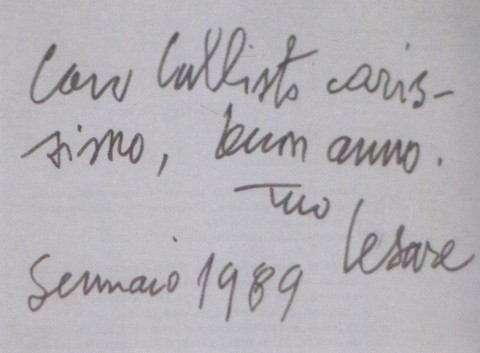 Caro Callisto caris-
simo, buon anno.
Tuo
Cesare
Gennaio 1989